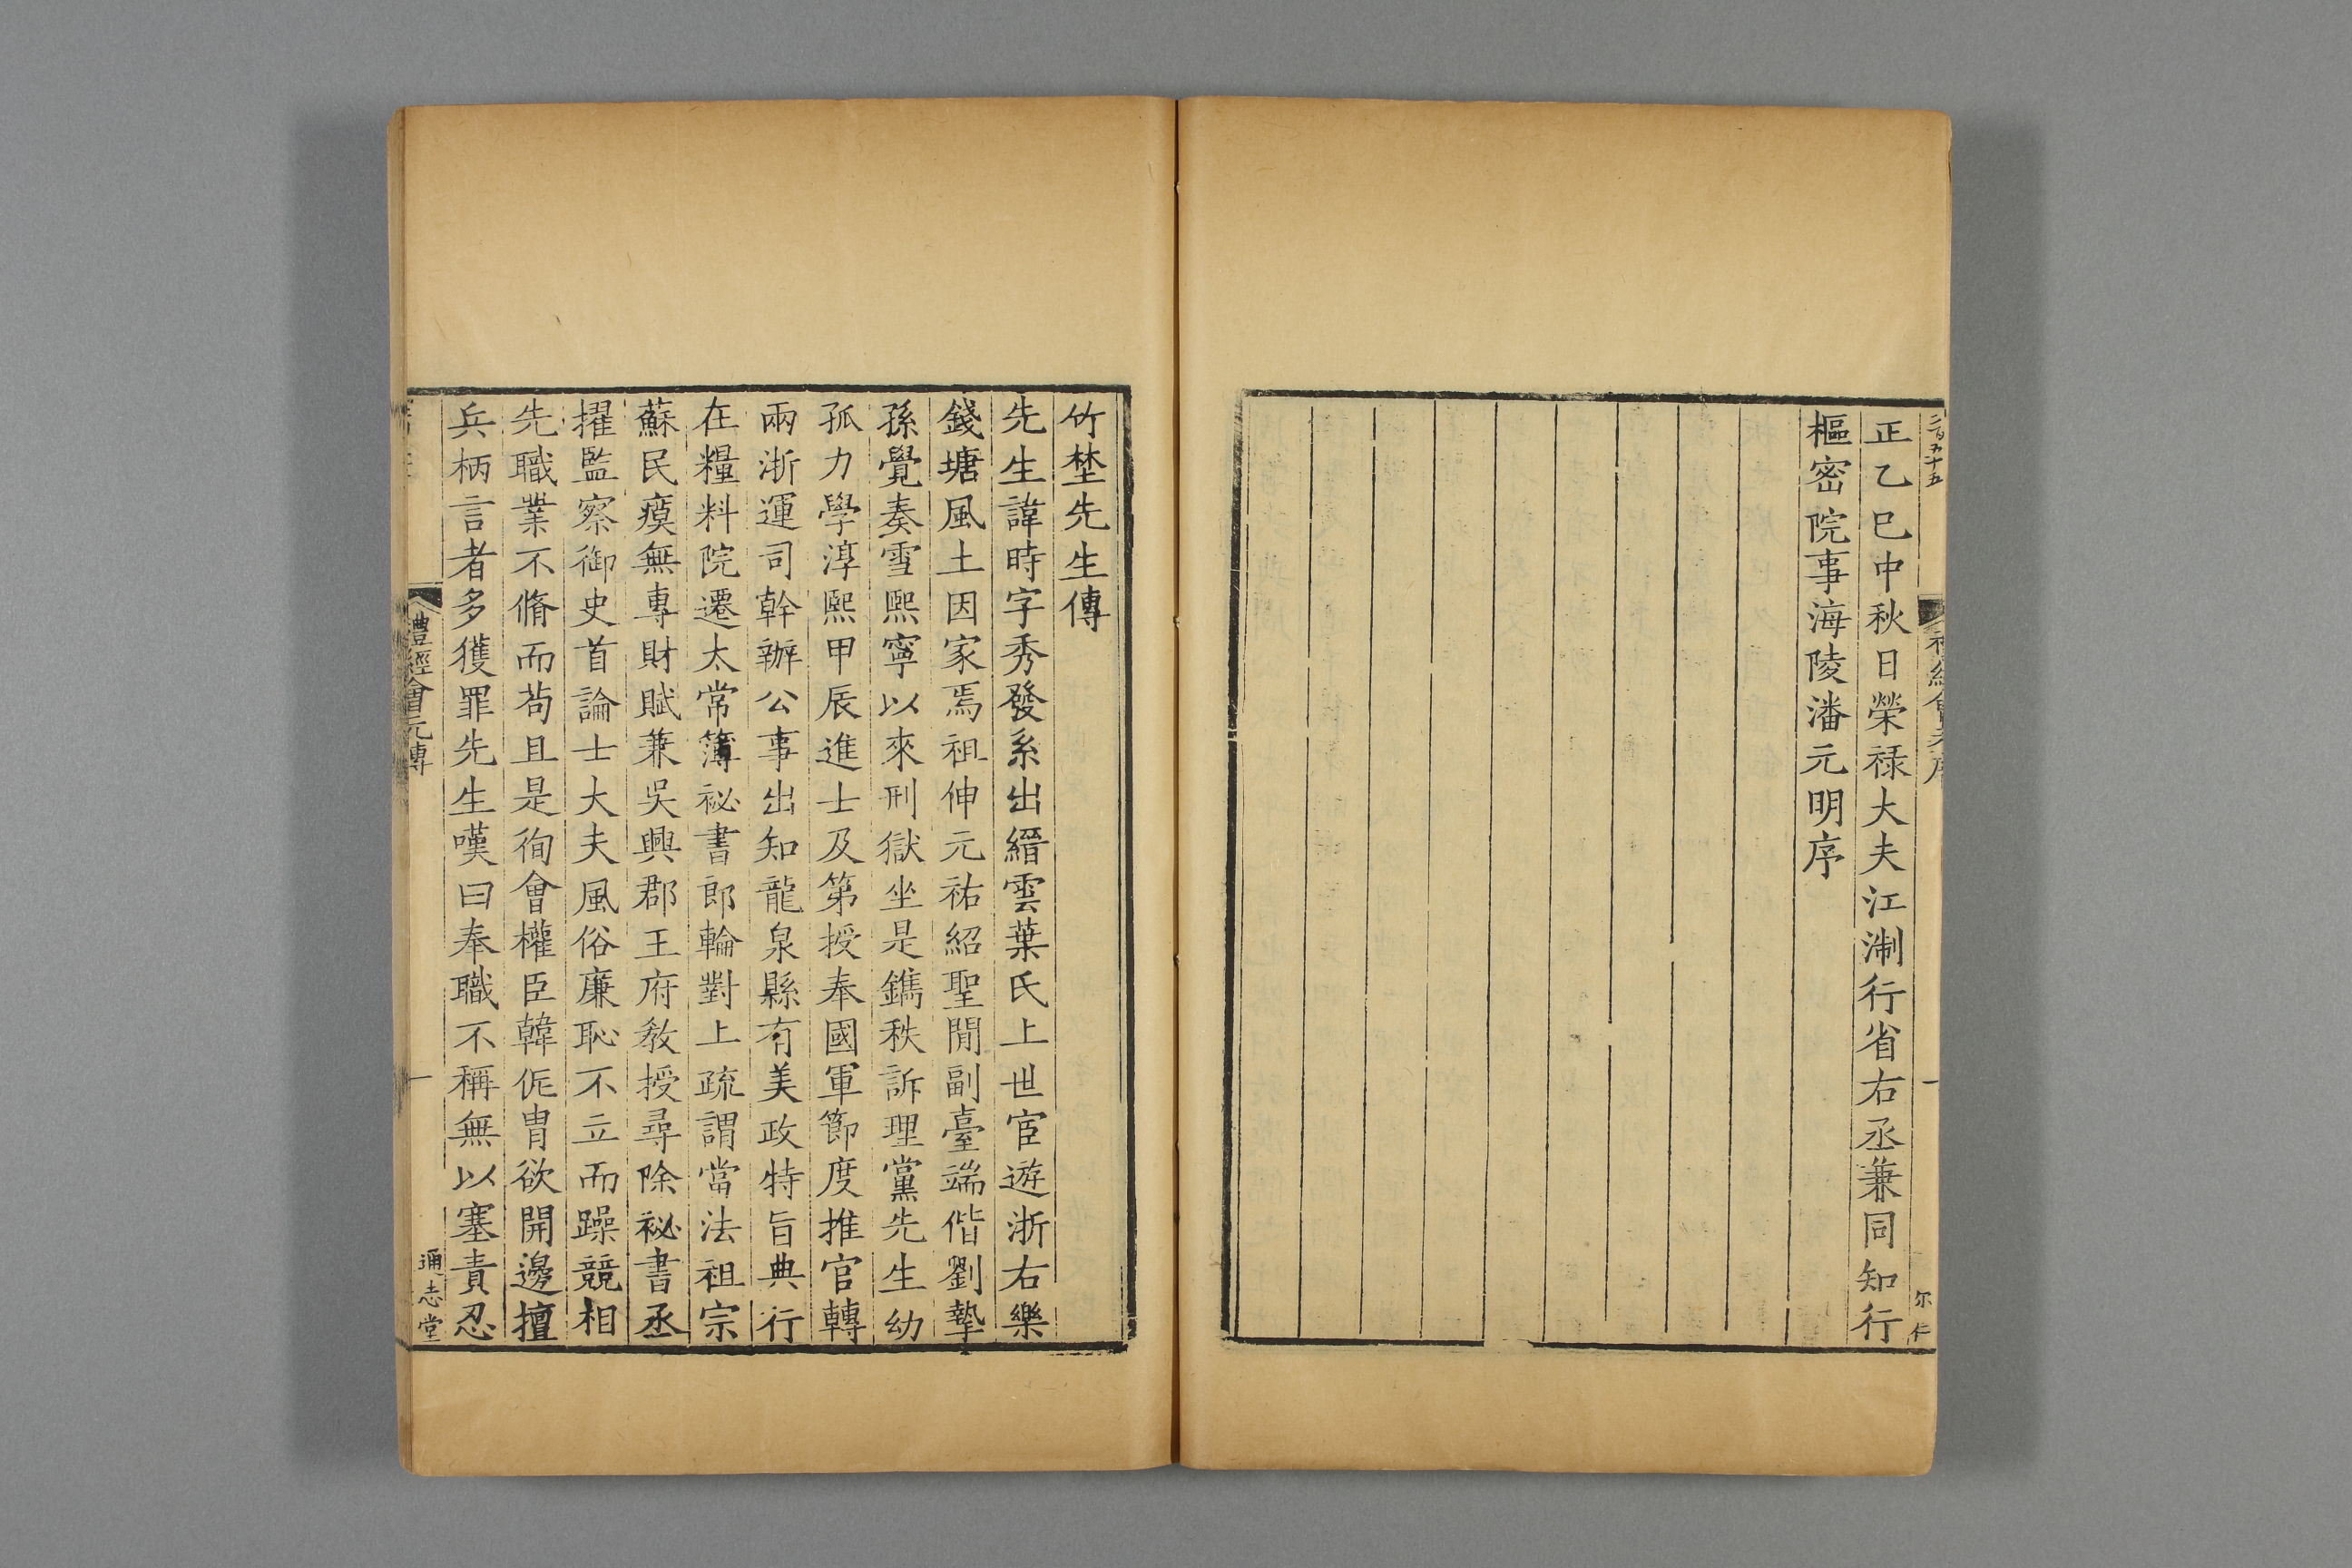 二百五十五
正乙巳中秋日榮祿大夫江浙行省右丞兼同知行
樞密院事海陵潘元明序
一
尓仁
竹埜先生傳
先生諱時字秀發系出縉雲葉氏上世宦遊浙右樂
錢塘風土因家焉祖伸元祐紹聖間副臺端偕劉摯
孫覺奏雪熙寧以來刑獄坐是鐫秩訴理黨先生幼
孤力學淳熙甲辰進士及第授奉國軍節度推官轉
兩浙運司幹辦公事出知龍泉縣有美政特旨典行
在糧料院遷太常簿祕書郎輪對上疏謂當法祖宗
蘇民瘼無專財賦兼吳興郡王府教授尋除祕書丞
擢監察御史首論士大夫風俗廉恥不立而躁競相
先職業不脩而苟且是徇會權臣韓侂胄欲開邊擅
兵柄言者多獲罪先生嘆曰奉職不稱無以塞責忍
禮經會元傳
一
通志堂